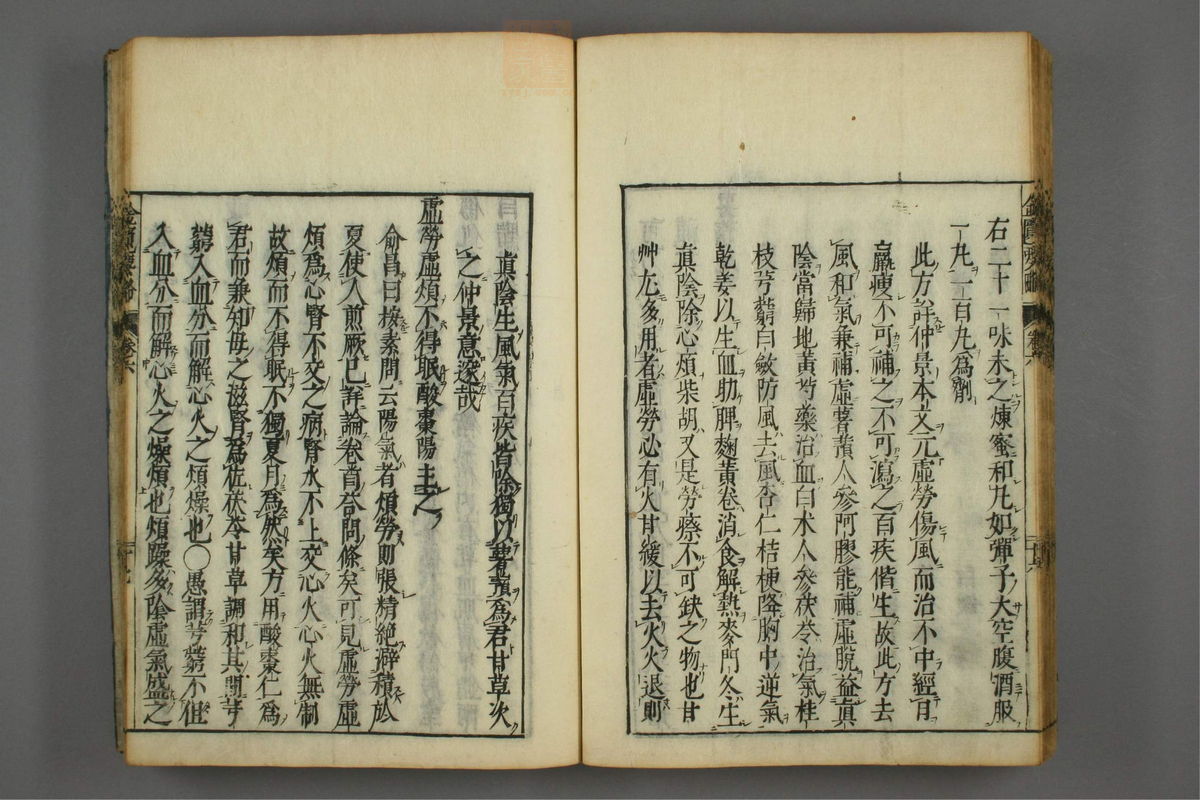 右二十一味末之煉蜜和丸如彈子大空腹酒服
一丸一百丸為劑
此方詳仲景本文元虛勞傷風而治不中經有
羸瘦不可補之不可瀉之百疾偕生故此方去
風和氣兼補虛薯蕷人參阿膠能補虛脫益真
陰當歸地黃芍藥治血白朮人參茯苓治氣桂
枝芎藭白斂防風去風杏仁桔梗降胸中逆氣
乾姜以生血助脾麴黃卷消食解熱麥門冬生
真陰除心煩柴胡又是勞瘵不可缺之物也甘
艸尤多用者虛勞必有火甘緩以去火火退則
真陰生風氣百疾皆除獨以薯蕷為君甘草次
之仲景意深哉
虛勞虛煩不得眠酸棗湯主之
俞昌曰按素問云陽氣者煩勞則張精絕辟積於
夏使人煎厥已詳論卷首荅問條矣可見虛勞虛
煩為心腎不交之病腎水不上交心火心火無制
故煩而不得眠不獨夏月為然矣方用酸棗仁為
君而兼知母之滋腎為佐茯苓甘草調和其間芎
藭入血分而解心火之煩燥也〇愚謂芎藭不但
入血分而解心火之燥煩也煩躁多陰虛氣盛之
卷六